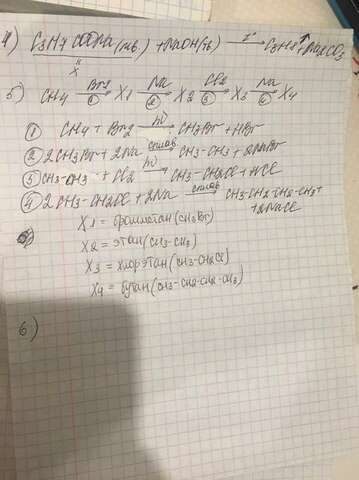 4) C3H7COONa(тв) + NaOH(тв) t° → C3H8↑ + Na2CO3
X
5) CH4 Br2 → ① X1 Na → ② X2 Cl2 → ③ X3 Na → ④ X4
① CH4 + Br2 hν → CH3Br + HBr
② 2CH3Br + 2Na сплав → CH3-CH3 + 2NaBr
③ CH3-CH3 + Cl2 hν → CH3-CH2Cl + HCl
④ 2CH3-CH2Cl + 2Na сплав → CH3-CH2-CH2-CH3 +
+ 2NaCl
X1 = бромметан (CH3Br)
X2 = этан (CH3-CH3)
X3 = хлорэтан (CH3-CH2Cl)
X4 = бутан (CH3-CH2-CH2-CH3)
6)